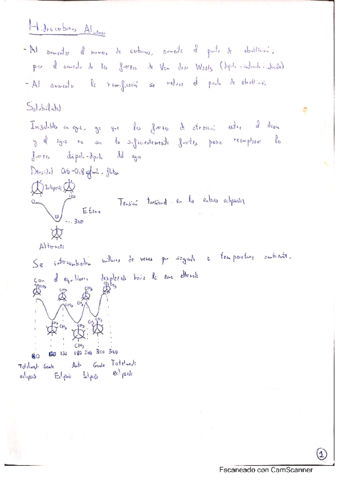 Hidrocarburos Alcanos
- Al aumentar el numero de carbonos, aumenta el punto de ebullición,
por el aumento de las fuerzas de Van der Waals (dipolo-inducido-inducido)
- Al aumentar la ramificación se reduce el punto de ebullición
Solubilidad
Insolubles en agua, ya que las fuerzas de atracción entre el alcano
y el agua no son lo suficientemente fuertes para reemplazar las
fuerzas dipolo-dipolo del agua
Densidad 0,6-0,8 g/ml flotan
Eclipsada
Tensión torsional en los enlaces eclipsados
Etano
Alternada
Se intercambian millones de veces por segundo a temperatura ambiente,
con el equilibrio desplazado hacia la forma alternada
CH3 CH3 CH3 CH3
CH3 CH3 CH3
60 120 180 240 300 360
Totalmente Gauche Anti Gauche Totalmente
eclipsada Eclipsada Eclipsada Eclipsada
1
Escaneado con CamScanner